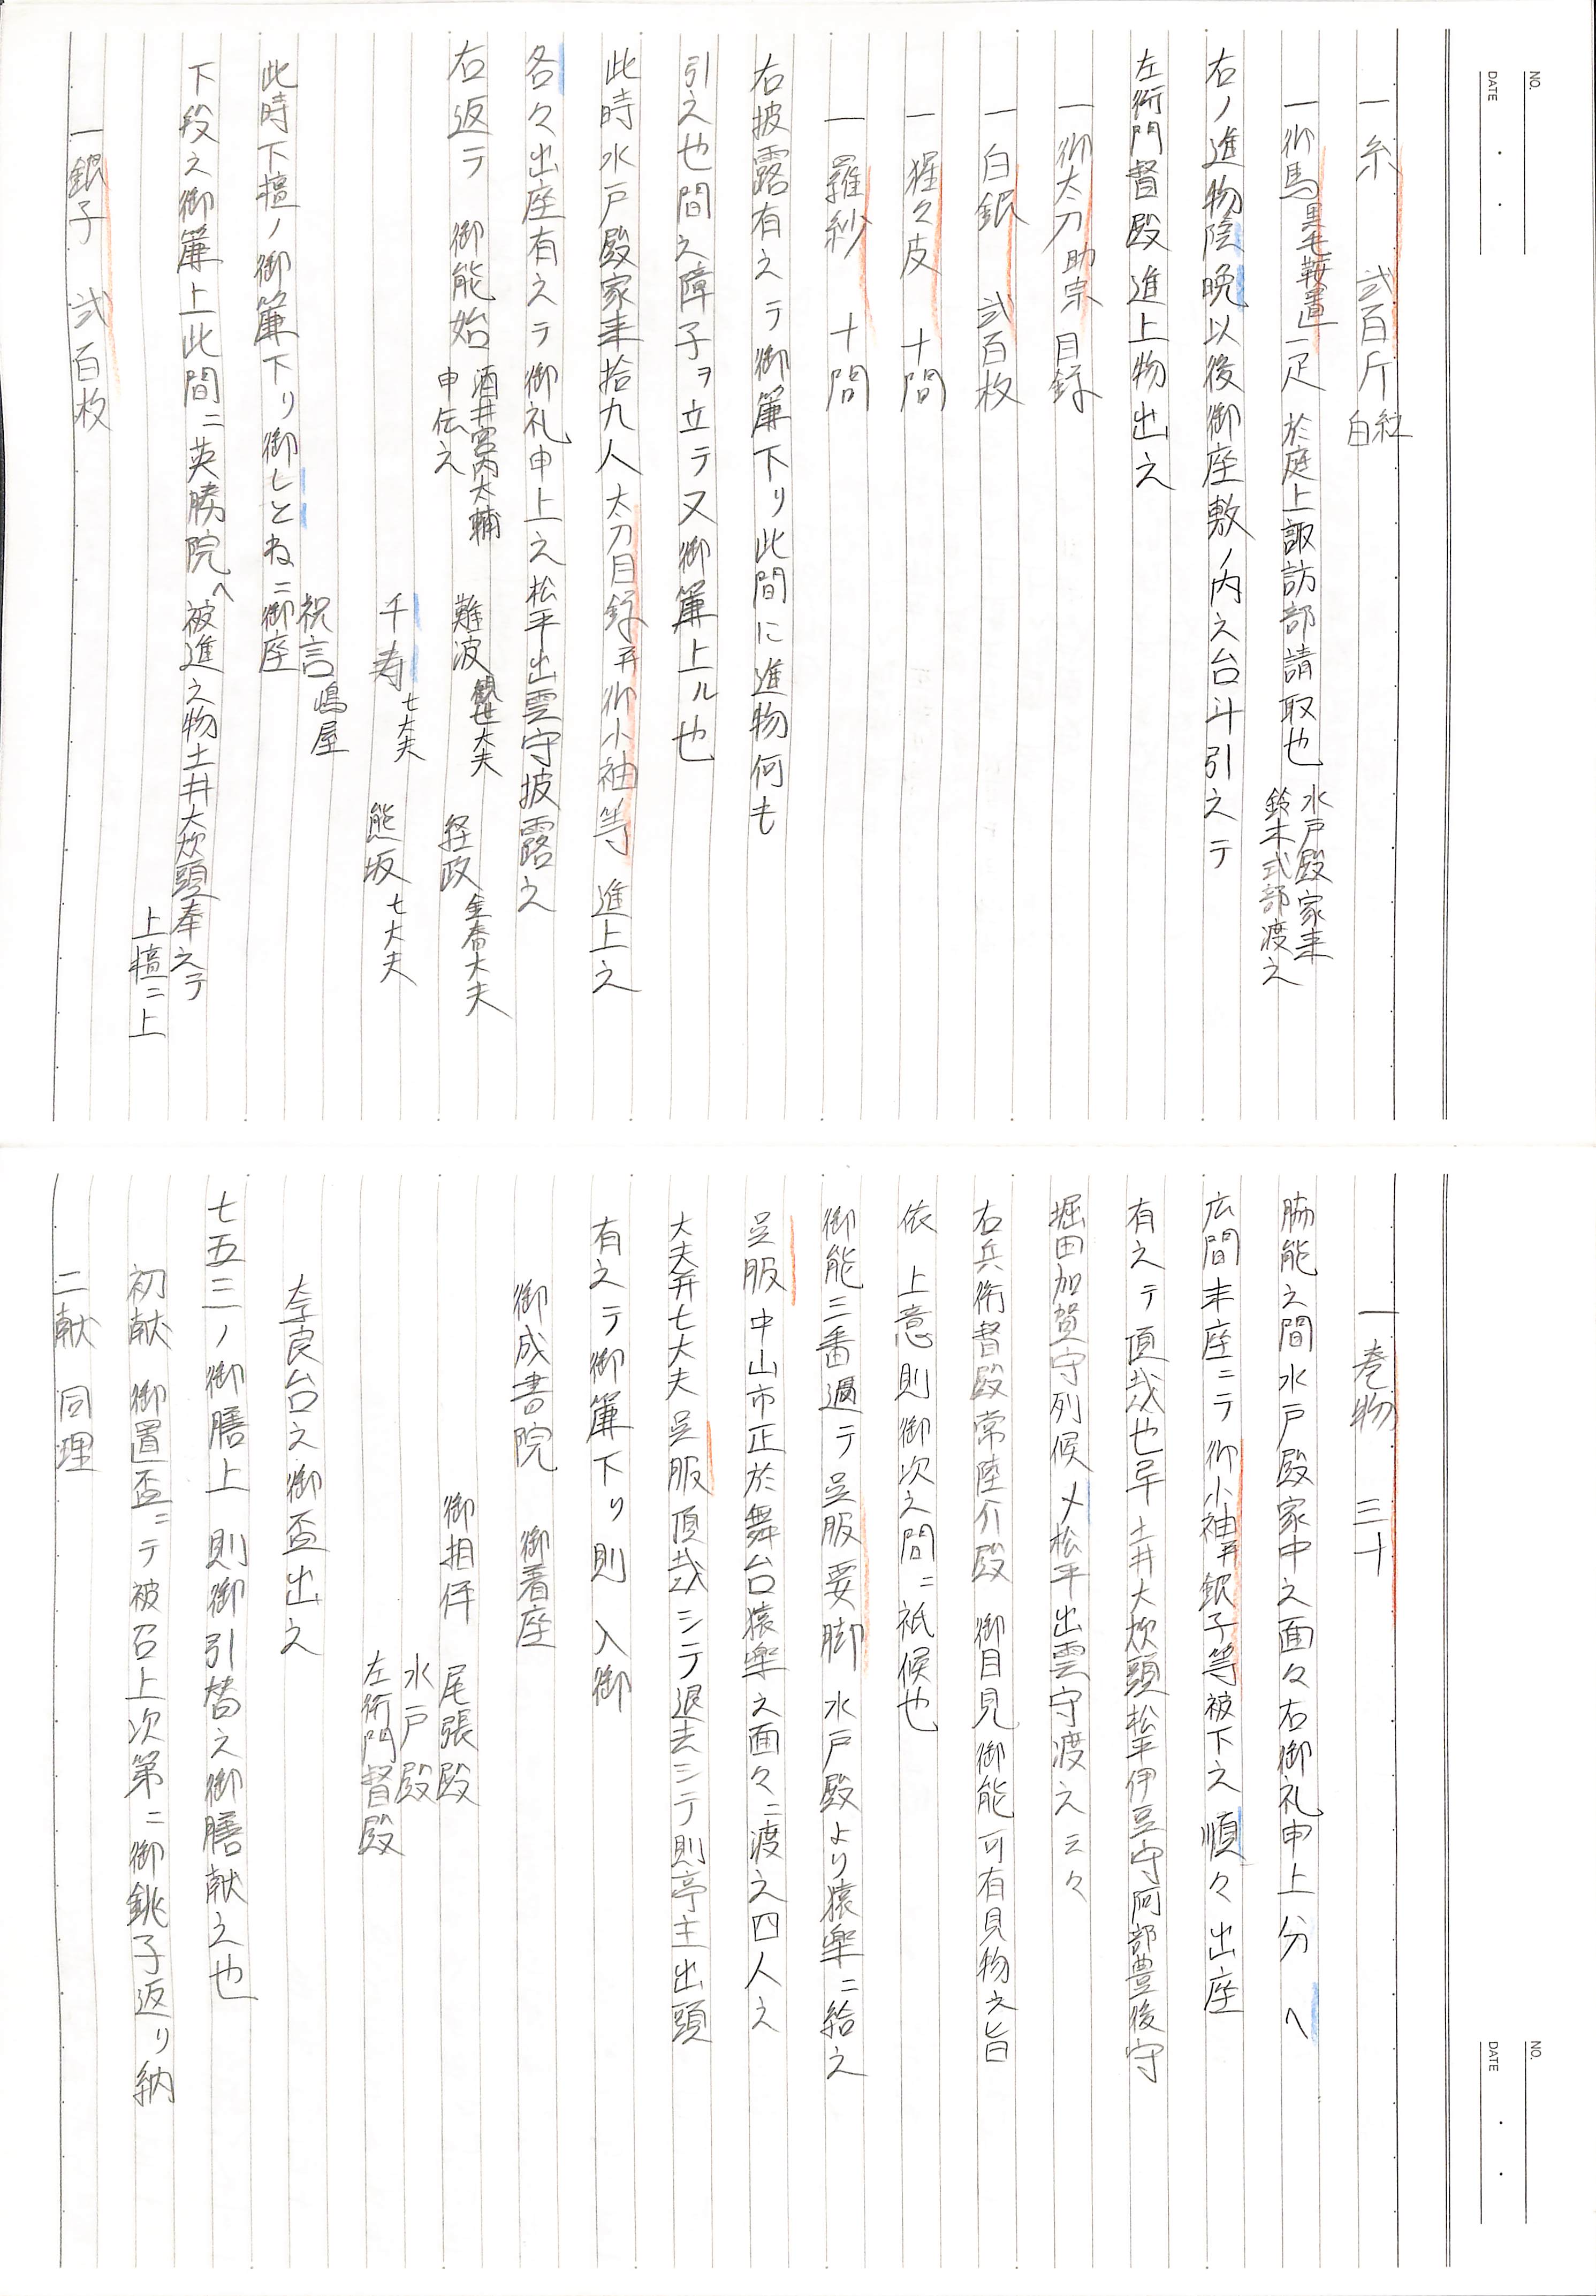 NO.
DATE
一糸 弐百斤 紅白
一御馬 黒毛鞍置一疋 於庭上諏訪部請取也 水戸殿家来
鈴木式部渡之
右ノ進物陰晩以後御座敷ノ内之台斗引之テ
左衛門督殿進上物出之
一御太刀 助宗 目録
一白銀 弐百枚
一猩々皮 十間
一羅紗 十間
右披露有之テ御簾下リ此間に進物何も
引之也間之障子ヲ立テ又御簾上ル也
此時水戸殿家来拾九人太刀目録并御小袖等 進上之
各々出座有之テ御礼申上之松平出雲守披露之
右返テ 御能始 酒井宮内大輔
申伝之 難波 観世大夫 経政 金春大夫
千寿 七大夫 熊坂 七大夫
祝言 嶋屋
此時下檀ノ御簾下リ御しとねニ御座
下段之御簾上此間ニ英勝院へ被進之物土井大炊頭奉之テ
上檀ニ上
一銀子 弐百枚
NO.
DATE
一巻物 三十
脇能之間水戸殿家中之面々右御礼申上分へ
広間末座ニテ御小袖并銀子等被下之順々出座
有之テ頂戴也畢土井大炊頭松平伊豆守阿部豊後守
堀田加賀守列候〆松平出雲守渡之云々
右兵衛督殿常陸介殿 御目見御能可有見物之旨
依 上意則御次之間ニ祇候也
御能三番過テ呉服要脚 水戸殿より猿楽ニ給之
呉服中山市正於舞台猿楽之面々ニ渡之四人之
大夫并七大夫呉服頂戴シテ退去シテ則亭主出頭
有之テ御簾下リ則 入御
御成書院 御着座
御相伴 尾張殿
水戸殿
左衛門督殿
奈良台之御盃出之
七五三ノ御膳上 則御引替之御膳献之也
初献 御置盃ニテ被召上次第ニ御銚子返リ納
二献 同理